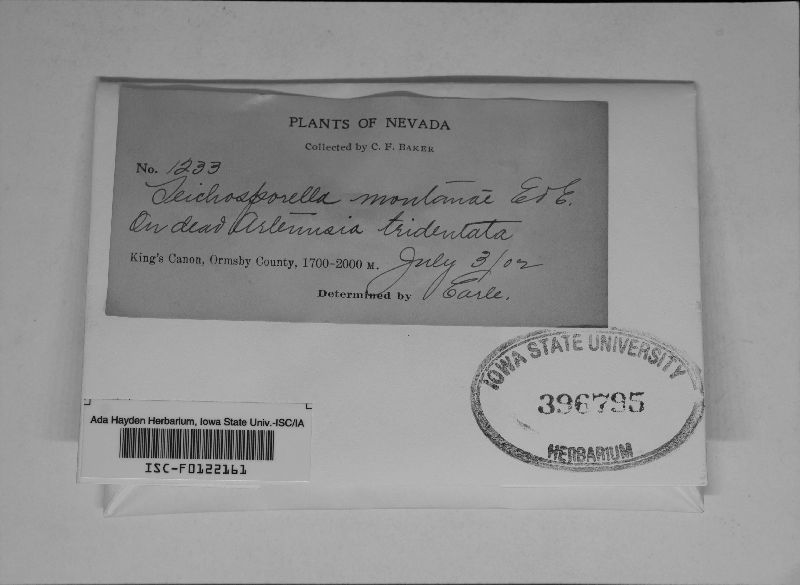 PLANTS OF NEVADA
Collected by C. F. BAKER
No. 1233
Teichosporella montanae E & E.
On dead Artemisia tridentata
King's Canon, Ormsby County, 1700-2000 M. July 3/02
Determined by Earle.
IOWA STATE UNIVERSITY
396795
HERBARIUM
Ada Hayden Herbarium, Iowa State Univ.-ISC/IA
ISC-F0122161